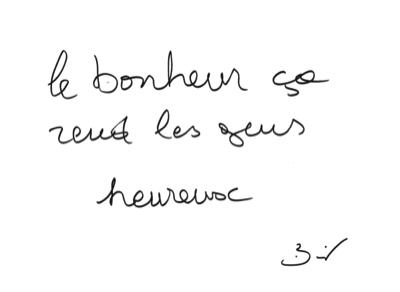 le bonheur ça
rend les gens
heureux